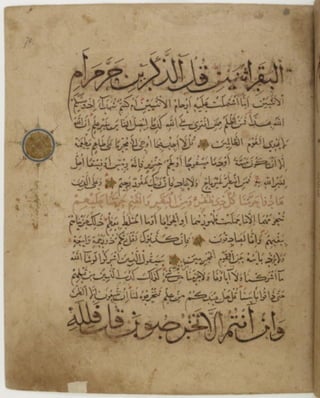 البقر اثنين قل آلذكرين حرم أم
الأنثيين أما اشتملت عليه أرحام الأنثيين أم كنتم شهداء إذ وصيكم
الله بهذا فمن أظلم ممن افترى على الله كذبا ليضل الناس بغير علم إن الله
لا يهدي القوم الظالمين قل لا أجد فيما أوحي إلي محرما على طاعم يطعمه
إلا أن يكون ميتة أو دما مسفوحا أو لحم خنزير فإنه رجس أو فسقا أهل
لغير الله به فمن اضطر غير باغ ولا عاد فإن ربك غفور رحيم وعلى الذين
هادوا حرمنا كل ذي ظفر ومن البقر والغنم حرمنا عليهم
شحومهما إلا ما حملت ظهورهما أو الحوايا أو ما اختلط بعظم ذلك جزيناهم
ببغيهم وإنا لصادقون فإن كذبوك فقل ربكم ذو رحمة واسعة
ولا يرد بأسه عن القوم المجرمين سيقول الذين أشركوا لو شاء الله
ما أشركنا ولا آباؤنا ولا حرمنا من شيء كذلك كذب الذين من قبلهم
حتى ذاقوا بأسنا قل هل عندكم من علم فتخرجوه لنا إن تتبعون إلا الظن
وإن أنتم إلا تخرصون قل فلله